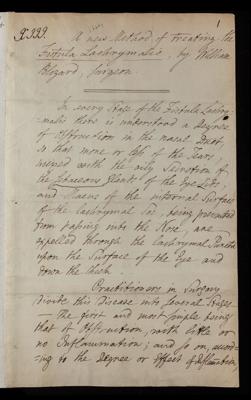 1
P. 339.
A new Method of treating the
Fistula Lachrymalis, by William
Blizard, Surgeon.
In every Stage of the Fistula Lachry-
-malis there is understood a degree
of Obstruction in the nasal Duct,
so that more or less of the Tears,
mixed with the oily Secretion of
the Sebaceous Glands of the Eye Lids,
and Mucus of the internal Surface
of the lachrymal Sac, being prevented
from passing into the Nose, are
expelled through the lachrymal Puncta
upon the Surface of the Eye and
down the Cheek.
Practitioners in Surgery
divide this Disease into several Stages
— the first and most simple being
that of Obstruction, with little or
no Inflammation; and so on, accord-
-ing to the Degree or Effect of Inflammation,